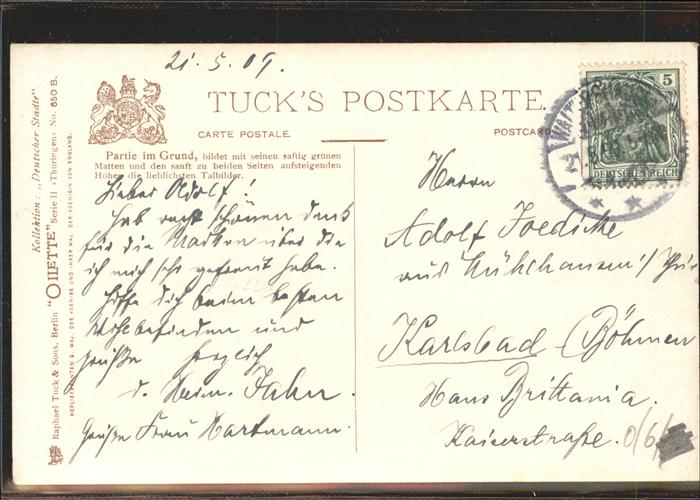 21.5.09.
TUCK'S POSTKARTE.
CARTE POSTALE.
POSTCARD
Partie im Grund, bildet mit seinen saftig grünen
Matten und den sanft zu beiden Seiten aufsteigenden
Höhen die lieblichsten Talbilder.
Lieber Adolf!
Hab recht schönen Dank
für die Marken über die
ich mich sehr gefreut habe.
Hoffe dich beim besten
Wohlbefinden und
grüße herzlich
d. Heinr. Jahn.
Grüße Frau Hartmann.
5
DEUTSCHES REICH
Herrn
Adolf Joedicke
aus Mühlhausen i/Thür
Karlsbad (Böhmen
Haus Brittania.
Kaiserstraße.
Kollektion: „Deutscher Städte".
"OILETTE" Serie II „Thüringen" No. 650 B.
Raphael Tuck & Sons, Berlin
HOFLIEFERANTEN S. MAJ. DES KOENIGS UND IHRER MAJ. DER KOENIGIN VON ENGLAND.